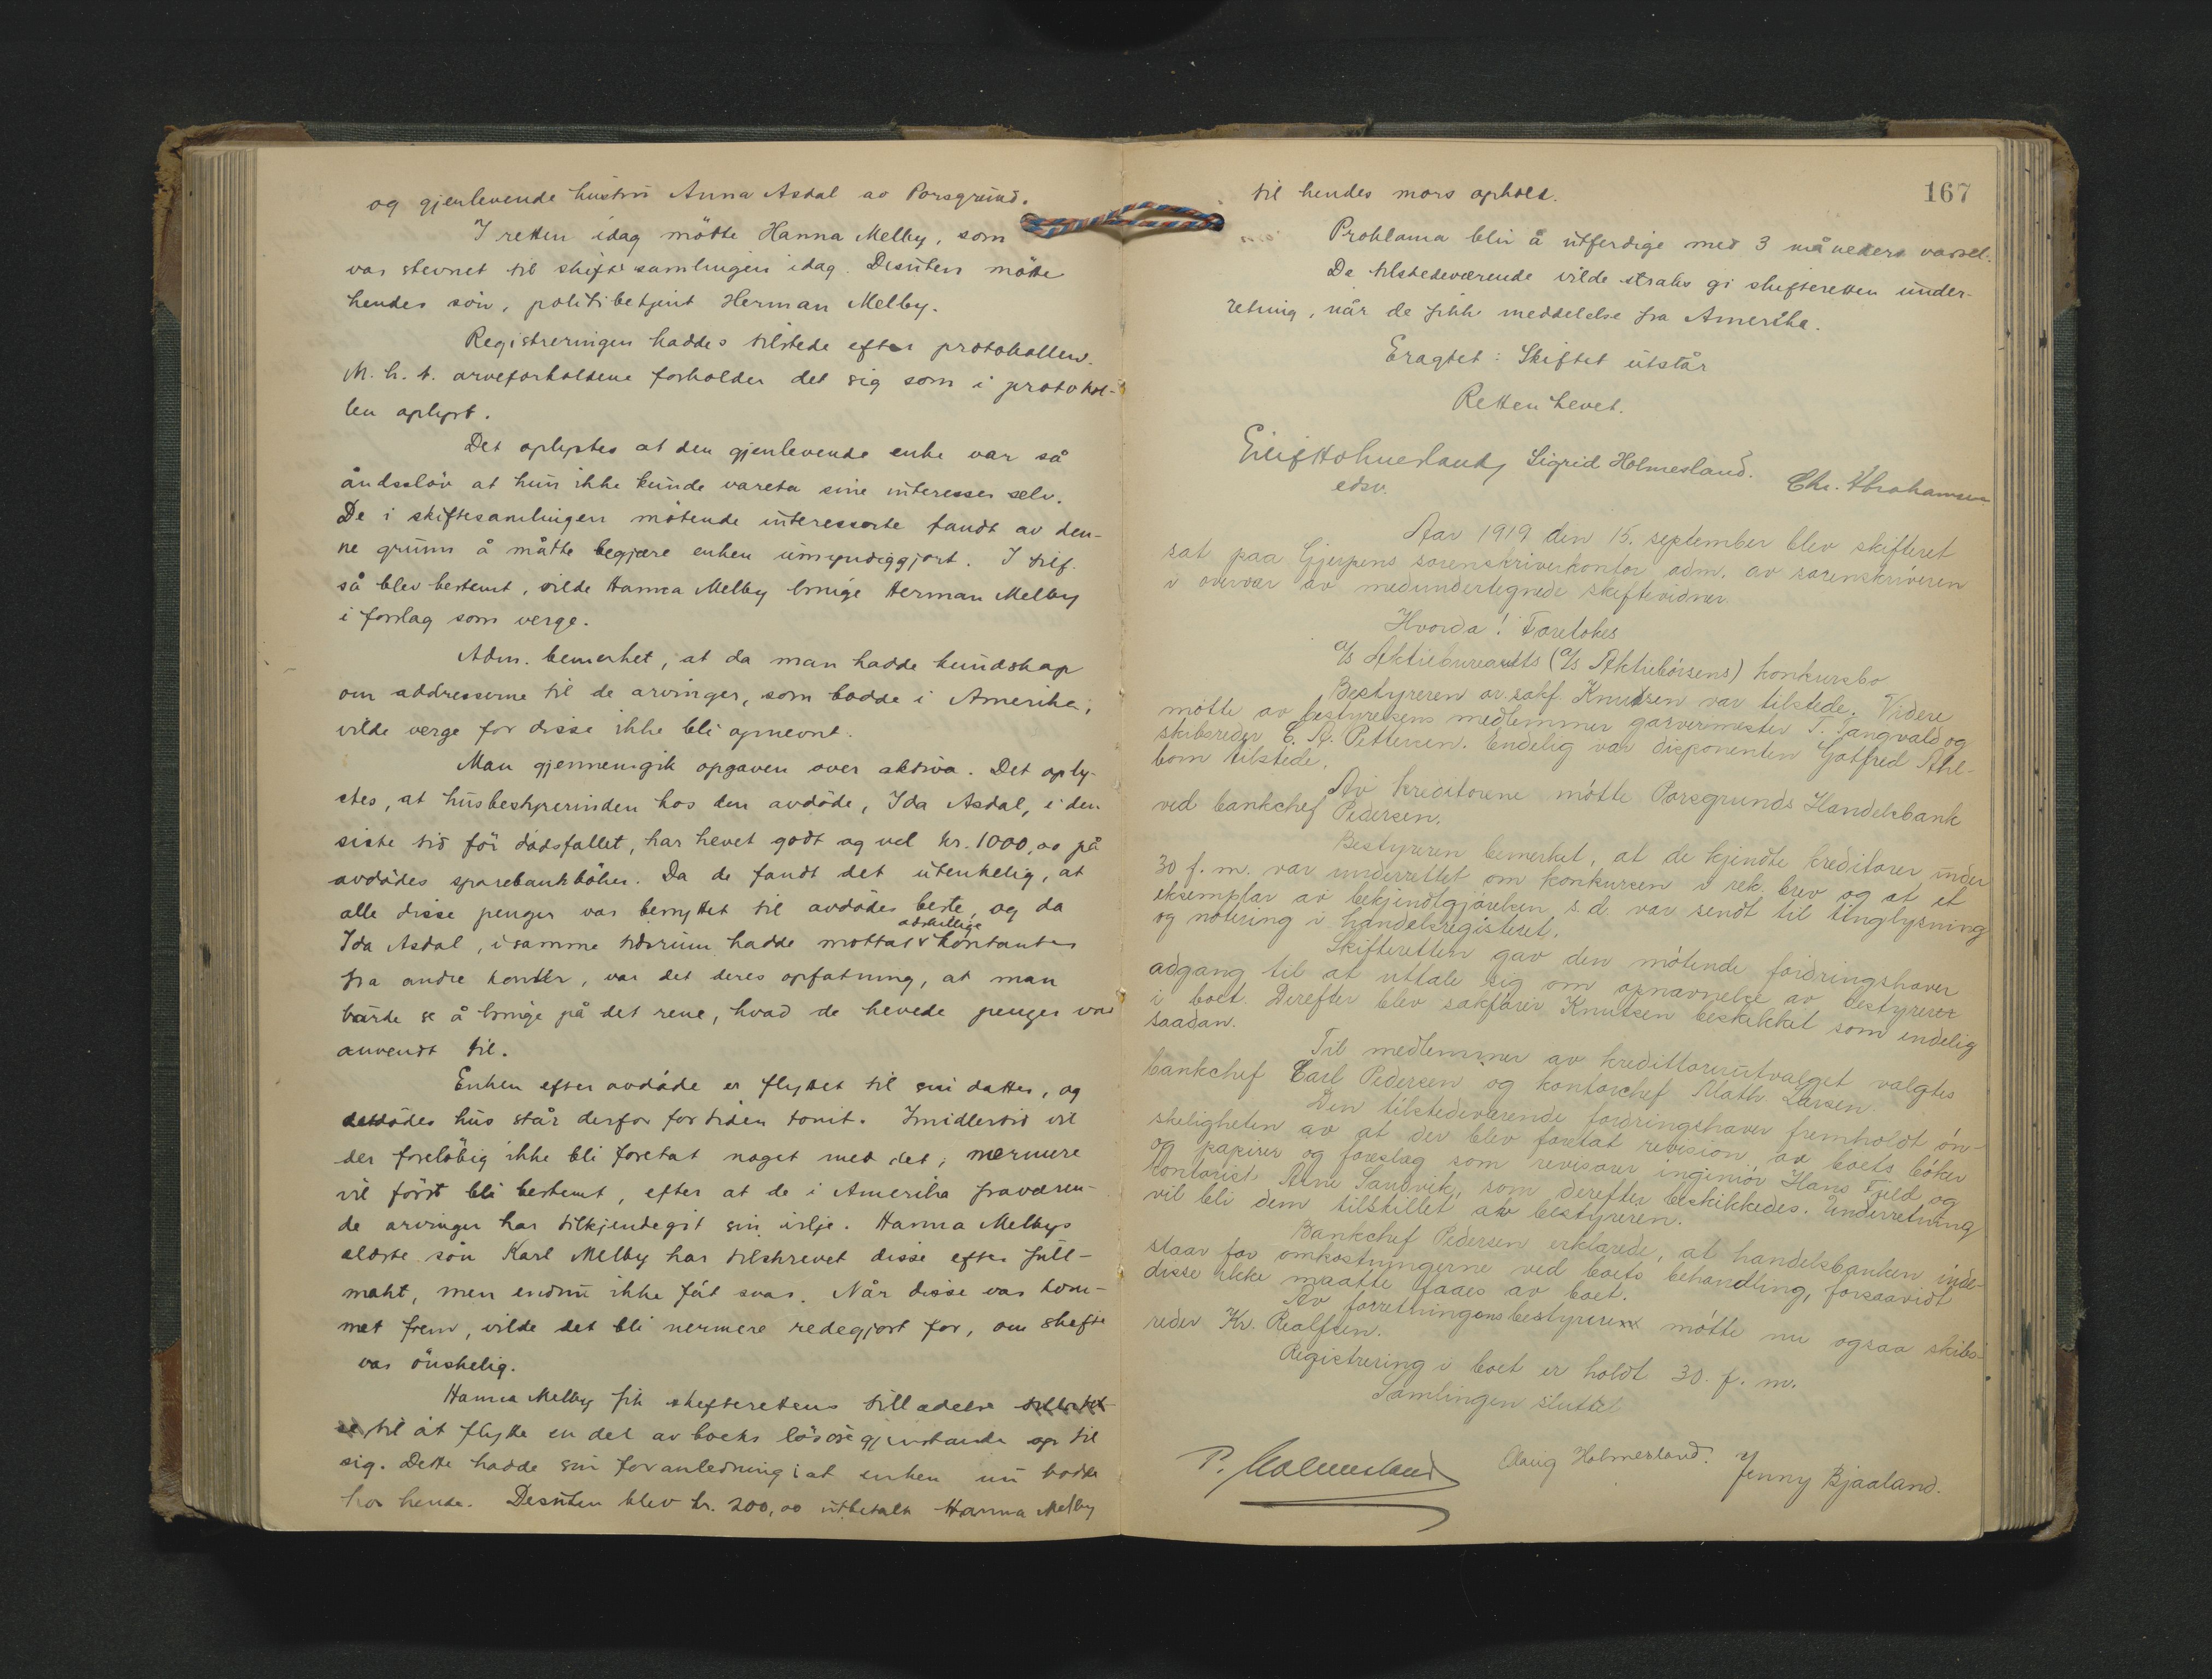 og gjenlevende hustru Anna Asdal av Porsgrund.
I retten idag mötte Hanna Melby, som
var stevnet til skiftesamlingen idag. Desuten mötte
hendes sön, politibetjent Herman Melby.
Registreringen haddes tilstede efter protokollen.
M. h. t. arveforholdene forholder det sig som i protokol-
len oplyst.
Det oplystes at den gjenlevende enke var så
åndsslöv at hun ikke kunde vareta sine interesser selv.
De i skiftesamlingen mötende interesserte fandt av den-
ne grunn å måtte begjære enken umyndiggjort. I tilf.
så blev bestemt, vilde Hanna Melby bringe Herman Melby
i forslag som verge.
Adm. bemerket, at da man hadde kundskap
om addresserne til de arvinger, som bodde i Amerika,
vilde verge for disse ikke bli opnevnt.
Man gjennemgik opgaven over aktiva. Det oply-
stes, at husbestyrerinden hos den avdöde, Ida Asdal, i den
siste tid för dödsfallet, har hevet godt og vel kr. 1000,00 på
avdödes sparebankböker. Da de fandt det utenkelig, at
alle disse penger var benyttet til avdödes beste, og da
Ida Asdal, i samme tidsrum hadde mottat adskillige kontanter
fra andre konter, var det deres opfatning, at man
burde se å bringe på det rene, hvad de hevede penger var
anvendt til.
Enken efter avdöde er flyttet til sin datter, og
avdödes hus står derfor for tiden tomt. Imidlertid vil
der foreløbig ikke bli foretat noget med det; nærmere
vil först bli bestemt, efter at de i Amerika fraværen-
de arvinger har tilkjendegit sin vilje. Hanna Melbys
eldste sön Karl Melby har tilskrevet disse efter full-
makt, men endnu ikke fåt svar. Når disse var kom-
met frem, vilde det bli nermere redegjort for, om skifte
var önskelig.
Hanna Melby fik skifteretens tilladelse
til åt flytte en del av boets lösöregjenstande op til
sig. Dette hadde sin foranledning i at enken nu bodde
hos hende. Desuten blev kr. 200,00 utbetalt Hanna Melby
167
til hendes mors ophold.
Proklama blir å utferdige med 3 måneders varsel.
De tilstedeværende vilde straks gi skifteretten under-
retning, når de fikk meddelelse fra Amerika.
Eragtet: Skiftet utstår
Retten hevet.
Eilif Holmesland, Sigrid Holmesland. Chr. Abrahamsen
edsv.
Aar 1919 den 15. september blev skifteret
sat paa Gjerpens sorenskriverkontor adm. av sorenskriveren
i overvær av medundertegnede skiftevidner.
Hvorda! Foretokes
A/s Aktiebureauets (A/s Aktiebörsens) konkursbo
Bestyreren o.r.sakf. Knutsen var tilstede. Videre
mötte av bestyrelsens medlemmer garvermester T. Tangvald og
skibsreder C. A. Pettersen. Endelig var disponenten Gotfred Ahl-
bom tilstede.
Av kreditorene mötte Porsgrunds Handelsbank
ved bankchef Pedersen.
Bestyreren bemerket, at de kjendte kreditorer under
30 f. m. var underrettet om konkursen i rek. brev og at et
eksemplar av bekjendtgjörelsen s. d. var sendt til tinglysning
og notering i handelsregisteret.
Skifteretten gav den mötende fordringshaver
adgang til at uttale sig om opnævnelse av bestyrerer
i boet. Derefter blev sakförer Knutsen beskikket som endelig
saadan.
Til medlemmer av kreditlorerutvalget valgtes
bankchef Carl Pedersen og kontorchef Math. Larsen.
Den tilstedeværende fordringshaver fremholdt ön-
skeligheten av at der blev foretat revision av boets böker
og papirer og foreslog som revisorer ingeniör Hans Fjeld og
kontorist Arne Sandvik, som derefter beskikkedes. Underretning
vil bli dem tilstillet av bestyreren.
Bankchef Pedersen erklærede, at handelsbanken inde-
staar for omkostningerne ved boets behandling, forsaavidt
disse ikke maatte faaes av boet.
Av forretningensbestyrerne mötte nu ogsaa skibs-
reder Kr. Realfsen.
Registrering i boet er holdt 30. f. m.
Samlingen sluttet
P. Holmesland Aaug Holmesland. Jenny Bjaaland.